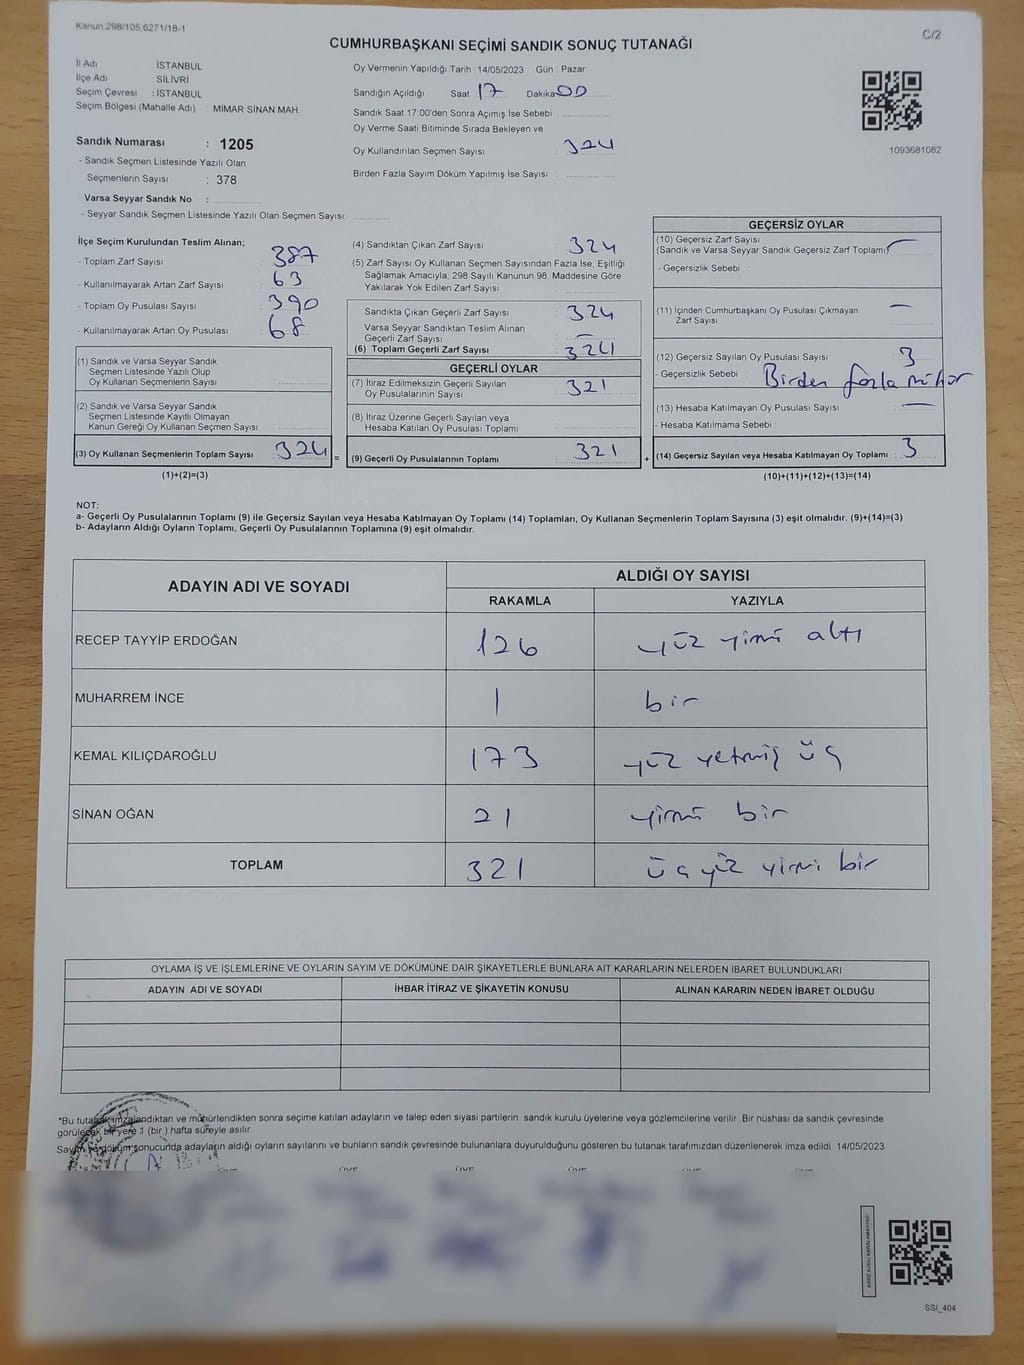 Kanun:298/105,6271/18-1
C/2
CUMHURBAŞKANI SEÇİMİ SANDIK SONUÇ TUTANAĞI
İl Adı İSTANBUL
İlçe Adı SİLİVRİ
Seçim Çevresi : İSTANBUL
Seçim Bölgesi (Mahalle Adı) : MİMAR SİNAN MAH.
Sandık Numarası : 1205
- Sandık Seçmen Listesinde Yazılı Olan
Seçmenlerin Sayısı : 378
Varsa Seyyar Sandık No :
- Seyyar Sandık Seçmen Listesinde Yazılı Olan Seçmen Sayısı:
Oy Vermenin Yapıldığı Tarih : 14/05/2023 Gün : Pazar
Sandığın Açıldığı Saat 17 Dakika 00
Sandık Saat 17:00'den Sonra Açımış İse Sebebi
Oy Verme Saati Bitiminde Sırada Bekleyen ve
Oy Kullandırılan Seçmen Sayısı : 324
Birden Fazla Sayım Döküm Yapılmış İse Sayısı :
1093681082
İlçe Seçim Kurulundan Teslim Alınan;
- Toplam Zarf Sayısı : 387
- Kullanılmayarak Artan Zarf Sayısı : 63
- Toplam Oy Pusulası Sayısı : 390
- Kullanılmayarak Artan Oy Pusulası : 68
(1) Sandık ve Varsa Seyyar Sandık
Seçmen Listesinde Yazılı Olup
Oy Kullanan Seçmenlerin Sayısı :
(2) Sandık ve Varsa Seyyar Sandık
Seçmen Listesinde Kayıtlı Olmayan
Kanun Gereği Oy Kullanan Seçmen Sayısı :
(3) Oy Kullanan Seçmenlerin Toplam Sayısı : 324
(1)+(2)=(3)
(4) Sandıktan Çıkan Zarf Sayısı : 324
(5) Zarf Sayısı Oy Kullanan Seçmen Sayısından Fazla İse, Eşitliği
Sağlamak Amacıyla, 298 Sayılı Kanunun 98. Maddesine Göre
Yakılarak Yok Edilen Zarf Sayısı :
Sandıkta Çıkan Geçerli Zarf Sayısı : 324
Varsa Seyyar Sandıktan Teslim Alınan
Geçerli Zarf Sayısı : —
(6) Toplam Geçerli Zarf Sayısı : 324
GEÇERLİ OYLAR
(7) İtiraz Edilmeksizin Geçerli Sayılan
Oy Pusulalarının Sayısı : 321
(8) İtiraz Üzerine Geçerli Sayılan veya
Hesaba Katılan Oy Pusulası Toplamı :
= (9) Geçerli Oy Pusulalarının Toplamı : 321 +
GEÇERSİZ OYLAR
(10) Geçersiz Zarf Sayısı
(Sandık ve Varsa Seyyar Sandık Geçersiz Zarf Toplamı) —
- Geçersizlik Sebebi :
(11) İçinden Cumhurbaşkanı Oy Pusulası Çıkmayan
Zarf Sayısı : —
(12) Geçersiz Sayılan Oy Pusulası Sayısı : 3
- Geçersizlik Sebebi : Birden fazla mühür
(13) Hesaba Katılmayan Oy Pusulası Sayısı : —
- Hesaba Katılmama Sebebi :
(14) Geçersiz Sayılan veya Hesaba Katılmayan Oy Toplamı : 3
(10)+(11)+(12)+(13)=(14)
NOT:
a- Geçerli Oy Pusulalarının Toplamı (9) ile Geçersiz Sayılan veya Hesaba Katılmayan Oy Toplamı (14) Toplamları, Oy Kullanan Seçmenlerin Toplam Sayısına (3) eşit olmalıdır. (9)+(14)=(3)
b- Adayların Aldığı Oyların Toplamı, Geçerli Oy Pusulalarının Toplamına (9) eşit olmalıdır.
ADAYIN ADI VE SOYADI ALDIĞI OY SAYISI
RAKAMLA YAZIYLA
RECEP TAYYİP ERDOĞAN 126 yüz yirmi altı
MUHARREM İNCE 1 bir
KEMAL KILIÇDAROĞLU 173 yüz yetmiş üç
SİNAN OĞAN 21 yirmi bir
TOPLAM 321 üçyüz yirmi bir
OYLAMA İŞ VE İŞLEMLERİNE VE OYLARIN SAYIM VE DÖKÜMÜNE DAİR ŞİKAYETLERLE BUNLARA AİT KARARLARIN NELERDEN İBARET BULUNDUKLARI
ADAYIN ADI VE SOYADI İHBAR İTİRAZ VE ŞİKAYETİN KONUSU ALINAN KARARIN NEDEN İBARET OLDUĞU
*Bu tutanak imzalandıktan ve mühürlendikten sonra seçime katılan adayların ve talep eden siyasi partilerin sandık kurulu üyelerine veya gözlemcilerine verilir. Bir nüshası da sandık çevresinde
görülecek bir yere 1 (bir) hafta süreyle asılır.
Sayım ve döküm sonucunda adayların aldığı oyların sayılarını ve bunların sandık çevresinde bulunanlara duyurulduğunu gösteren bu tutanak tarafımızdan düzenlenerek imza edildi. 14/05/2023
SSI_404